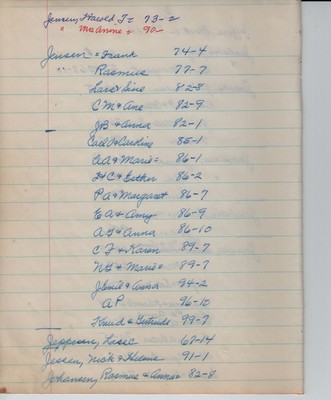 Jensen, Harold J = 73-2
" Mae Anne = 90-
Jensen = Frank 74-4
" Rasmus 77-7
Lars & Sine 82-8
C M & Ane 82-9
JB & Anna 82-1
Earl & Caroline 85-1
AA & Marie = 86-1
H C & Esther 86-2
P A & Margaret 86-7
E A & Amy 86-9
A G & Anna 86-10
C F & Karen 89-7
N G & Marie = 89-7
& Anna 94-2
A P 96-10
Knud & Gertrude 99-7
Jeppesen, 67-14
Jessen, Nick & Helena 91-1
Johansen, Rasmus & Anna = 82-8